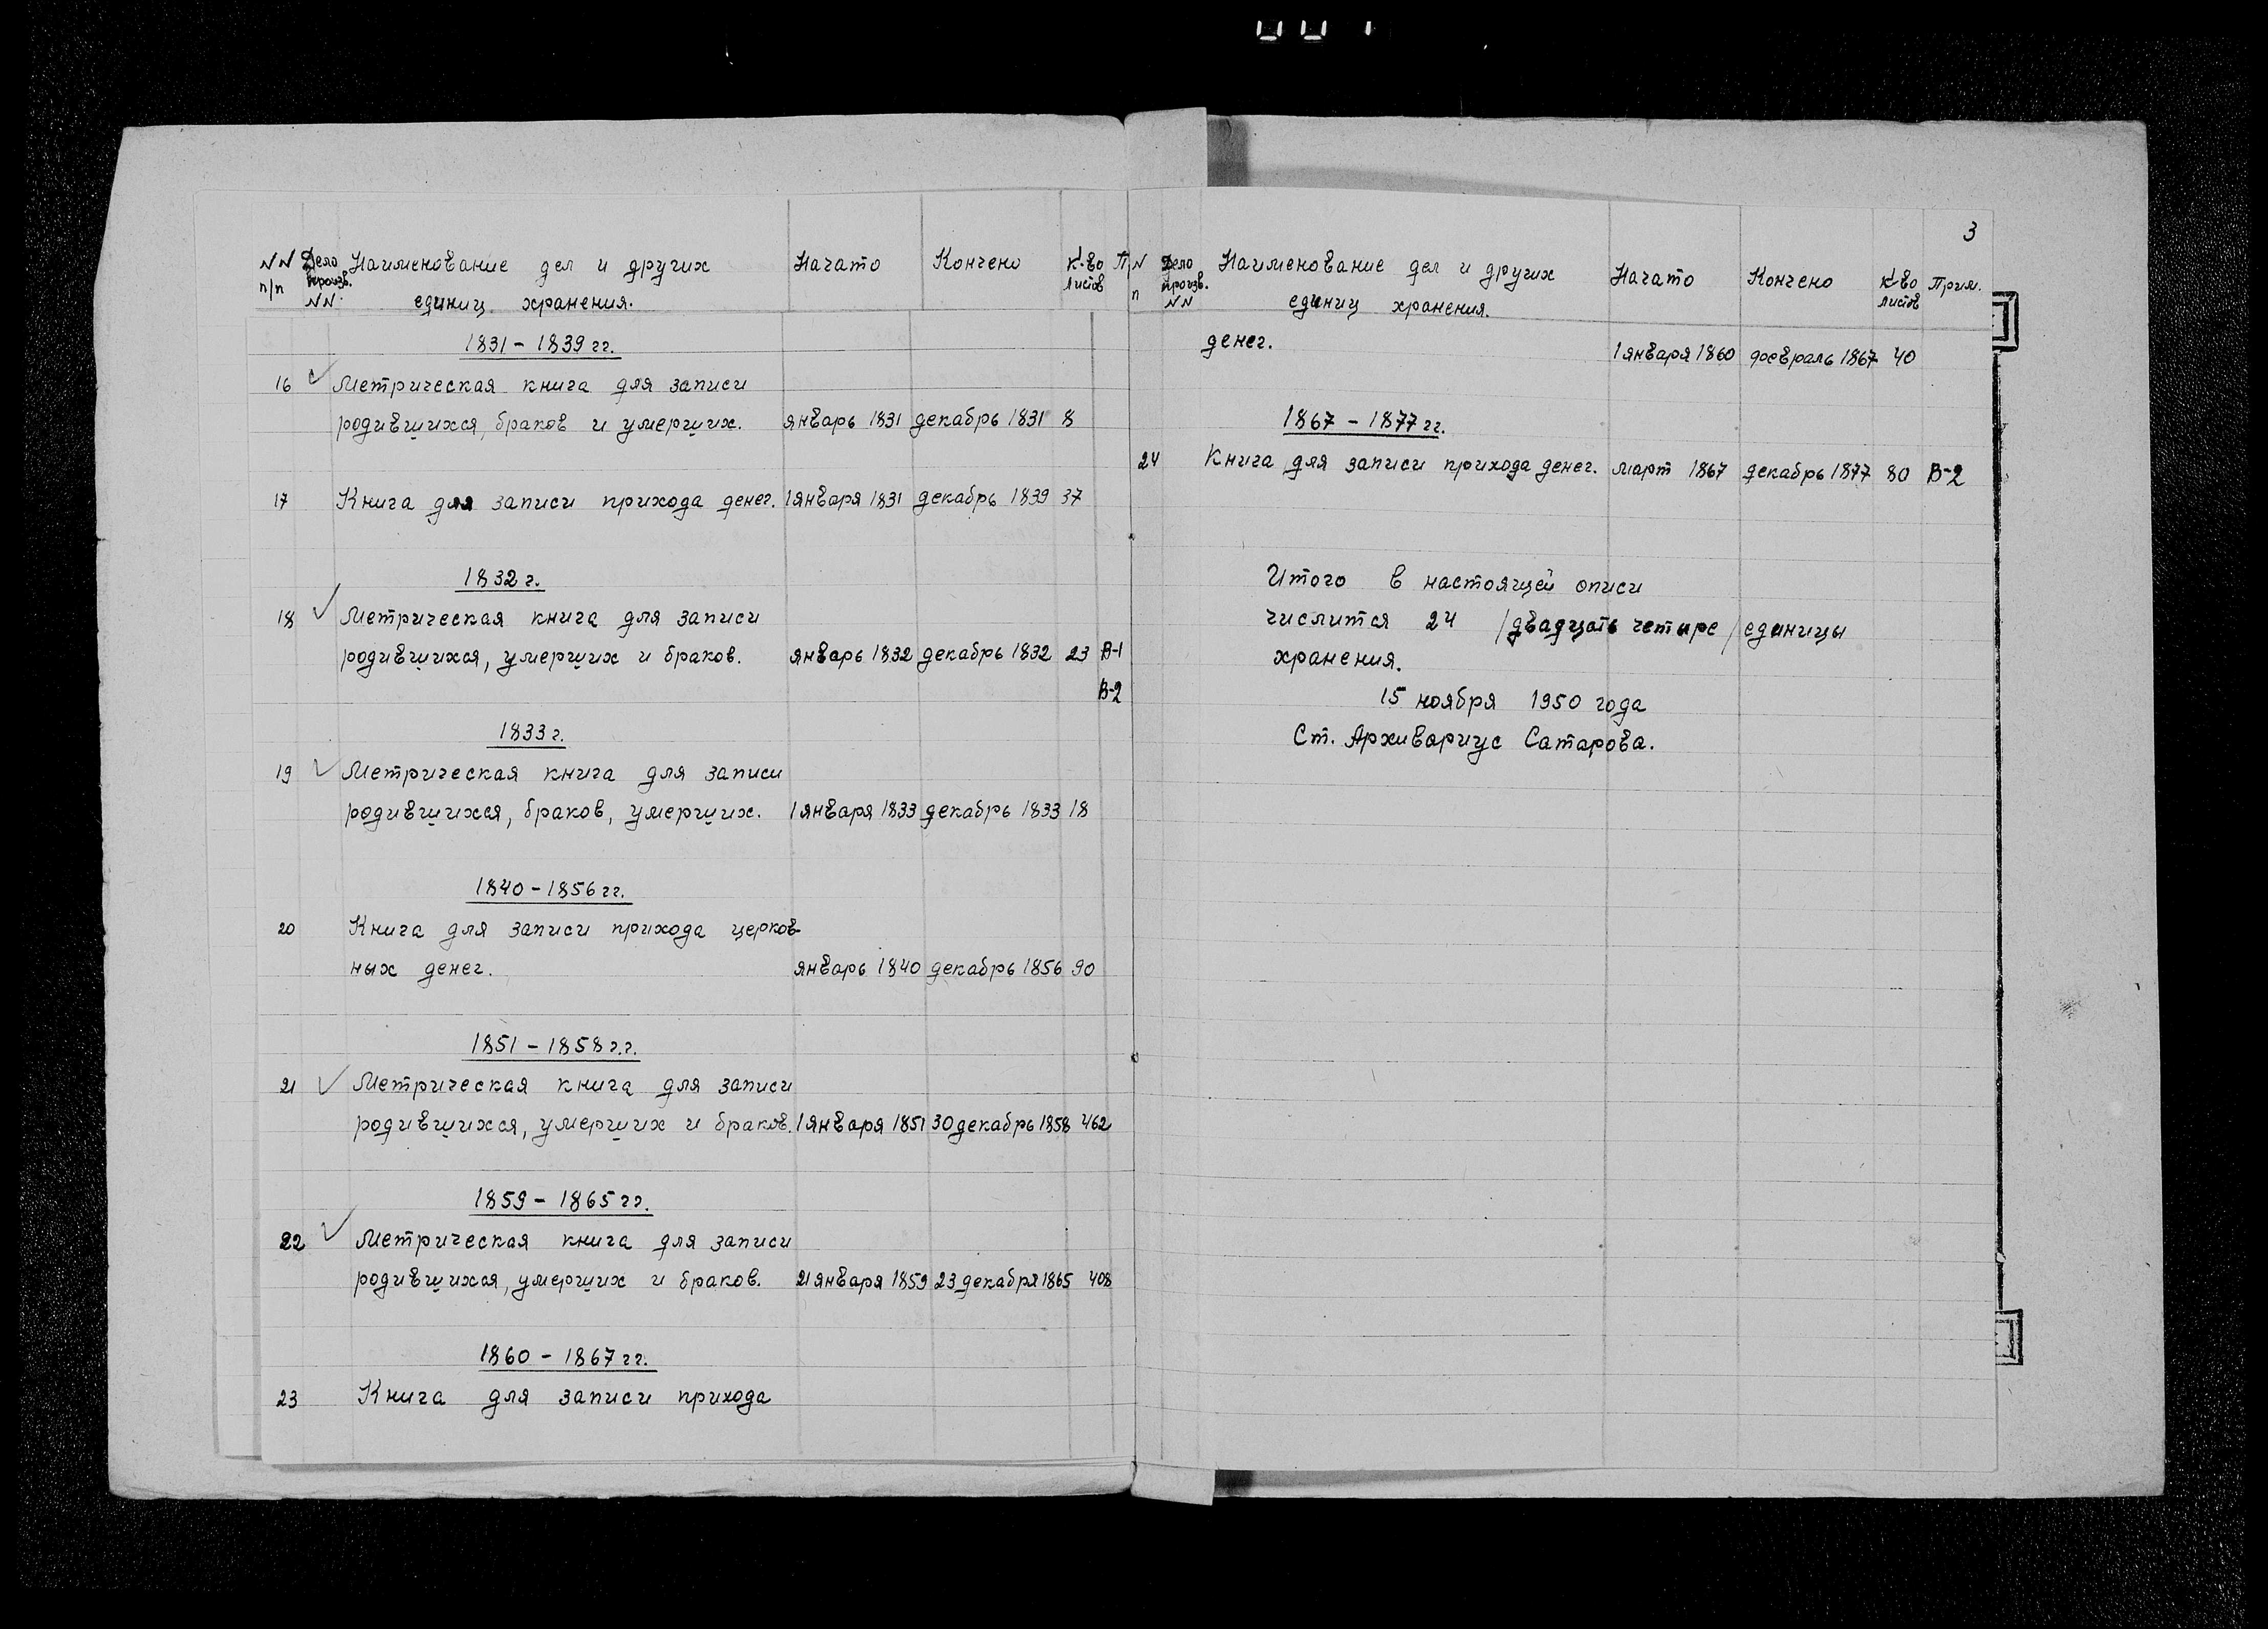 NN Дело Наименование дел и других Начато Кончено К-во П
п/п произв. единиц хранения. листов
NN.
1831 - 1839 гг.
16 Метрическая книга для записи
родившихся, браков и умерших. январь 1831 декабрь 1831 8
17 Книга для записи прихода денег. 1 января 1831 декабрь 1839 37
1832 г.
18 Метрическая книга для записи
родившихся, умерших и браков. январь 1832 декабрь 1832 23 В-1
В-2
1833 г.
19 Метрическая книга для записи
родившихся, браков, умерших. 1 января 1833 декабрь 1833 18
1840 - 1856 гг.
20 Книга для записи прихода церков-
ных денег. январь 1840 декабрь 1856 90
1851 - 1858 г.г.
21 Метрическая книга для записи
родившихся, умерших и браков. 1 января 1851 30 декабрь 1858 462
1859 - 1865 гг.
22 Метрическая книга для записи
родившихся, умерших и браков. 21 января 1859 23 декабря 1865 408
1860 - 1867 гг.
23 Книга для записи прихода
3
N Дело Наименование дел и других Начато Кончено К-во Прим.
п произв. единиц хранения. листов
NN
денег. 1 января 1860 февраль 1867 40
1867 - 1877 гг.
24 Книга для записи прихода денег. март 1867 декабрь 1877 80 В-2
Итого в настоящей описи
числится 24 /двадцать четыре/ единицы
хранения.
15 ноября 1950 года
Ст. Архивариус Сатарова.